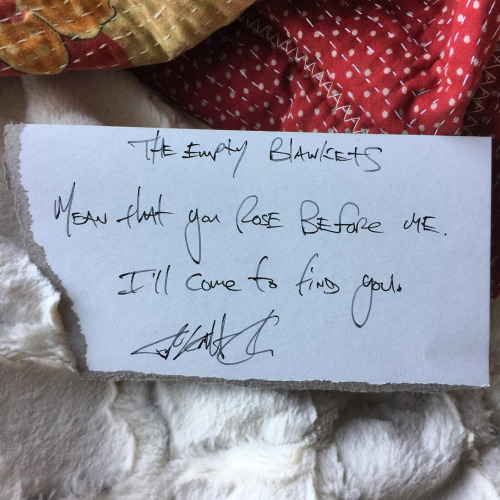 The Empty Blankets
Mean that you Rose Before me.
I'll come to find you.